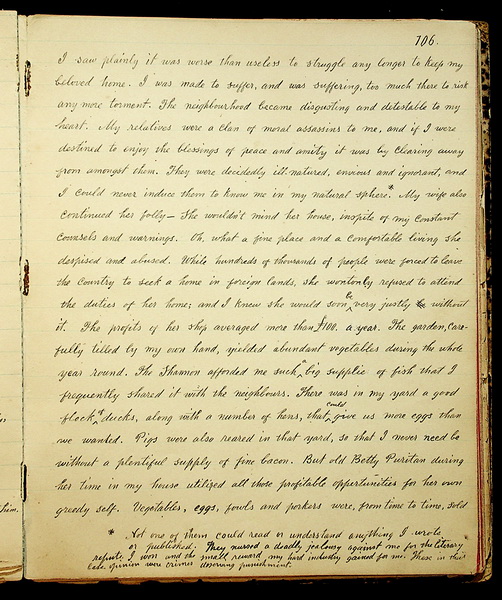 106.
I saw plainly it was worse than useless to struggle any longer to keep my
beloved home. I was made to suffer, and was suffering, too much there to risk
any more torment. The neighbourhood became disgusting and detestable to my
heart. My relatives were a clan of moral assassins to me, and if I were
destined to enjoy the blessings of peace and amity it was by clearing away
from amongst them. They were decidedly ill-natured, envious and ignorant, and
I could never induce them to know me in my natural sphere.* My wife also
continued her folly — She wouldn't mind her house, inspite of my constant
counsels and warnings. Oh, what a fine place and a comfortable living she
despised and abused. While hundreds of thousands of people were forced to leave
the Country to seek a home in foreign lands, she wontonly refused to attend
the duties of her home; and I knew she would soon be very justly without
it. The profits of her shop averaged more than £100, a year. The garden, care-
fully tilled by my own hand, yielded abundant vegetables during the whole
year round. The Shannon afforded me such a big supplie of fish that I
frequently shared it with the neighbours. There was in my yard a good
flock of ducks, along with a number of hens, that could give us more eggs than
we wanted. Pigs were also reared in that yard, so that I never need be
without a plentiful supply of fine bacon. But old Betty Puritan during
her time in my house utilized all those profitable opportunities for her own
greedy self. Vegetables, eggs, fowls and porkers were, from time to time, sold
* Not one of them could read or understand anything I wrote
or published. They nursed a deadly jealousy against me for the literary
repute I won and the small reward my hard industry gained for me. These in their
base opinion were crimes deserving punishment.
him.